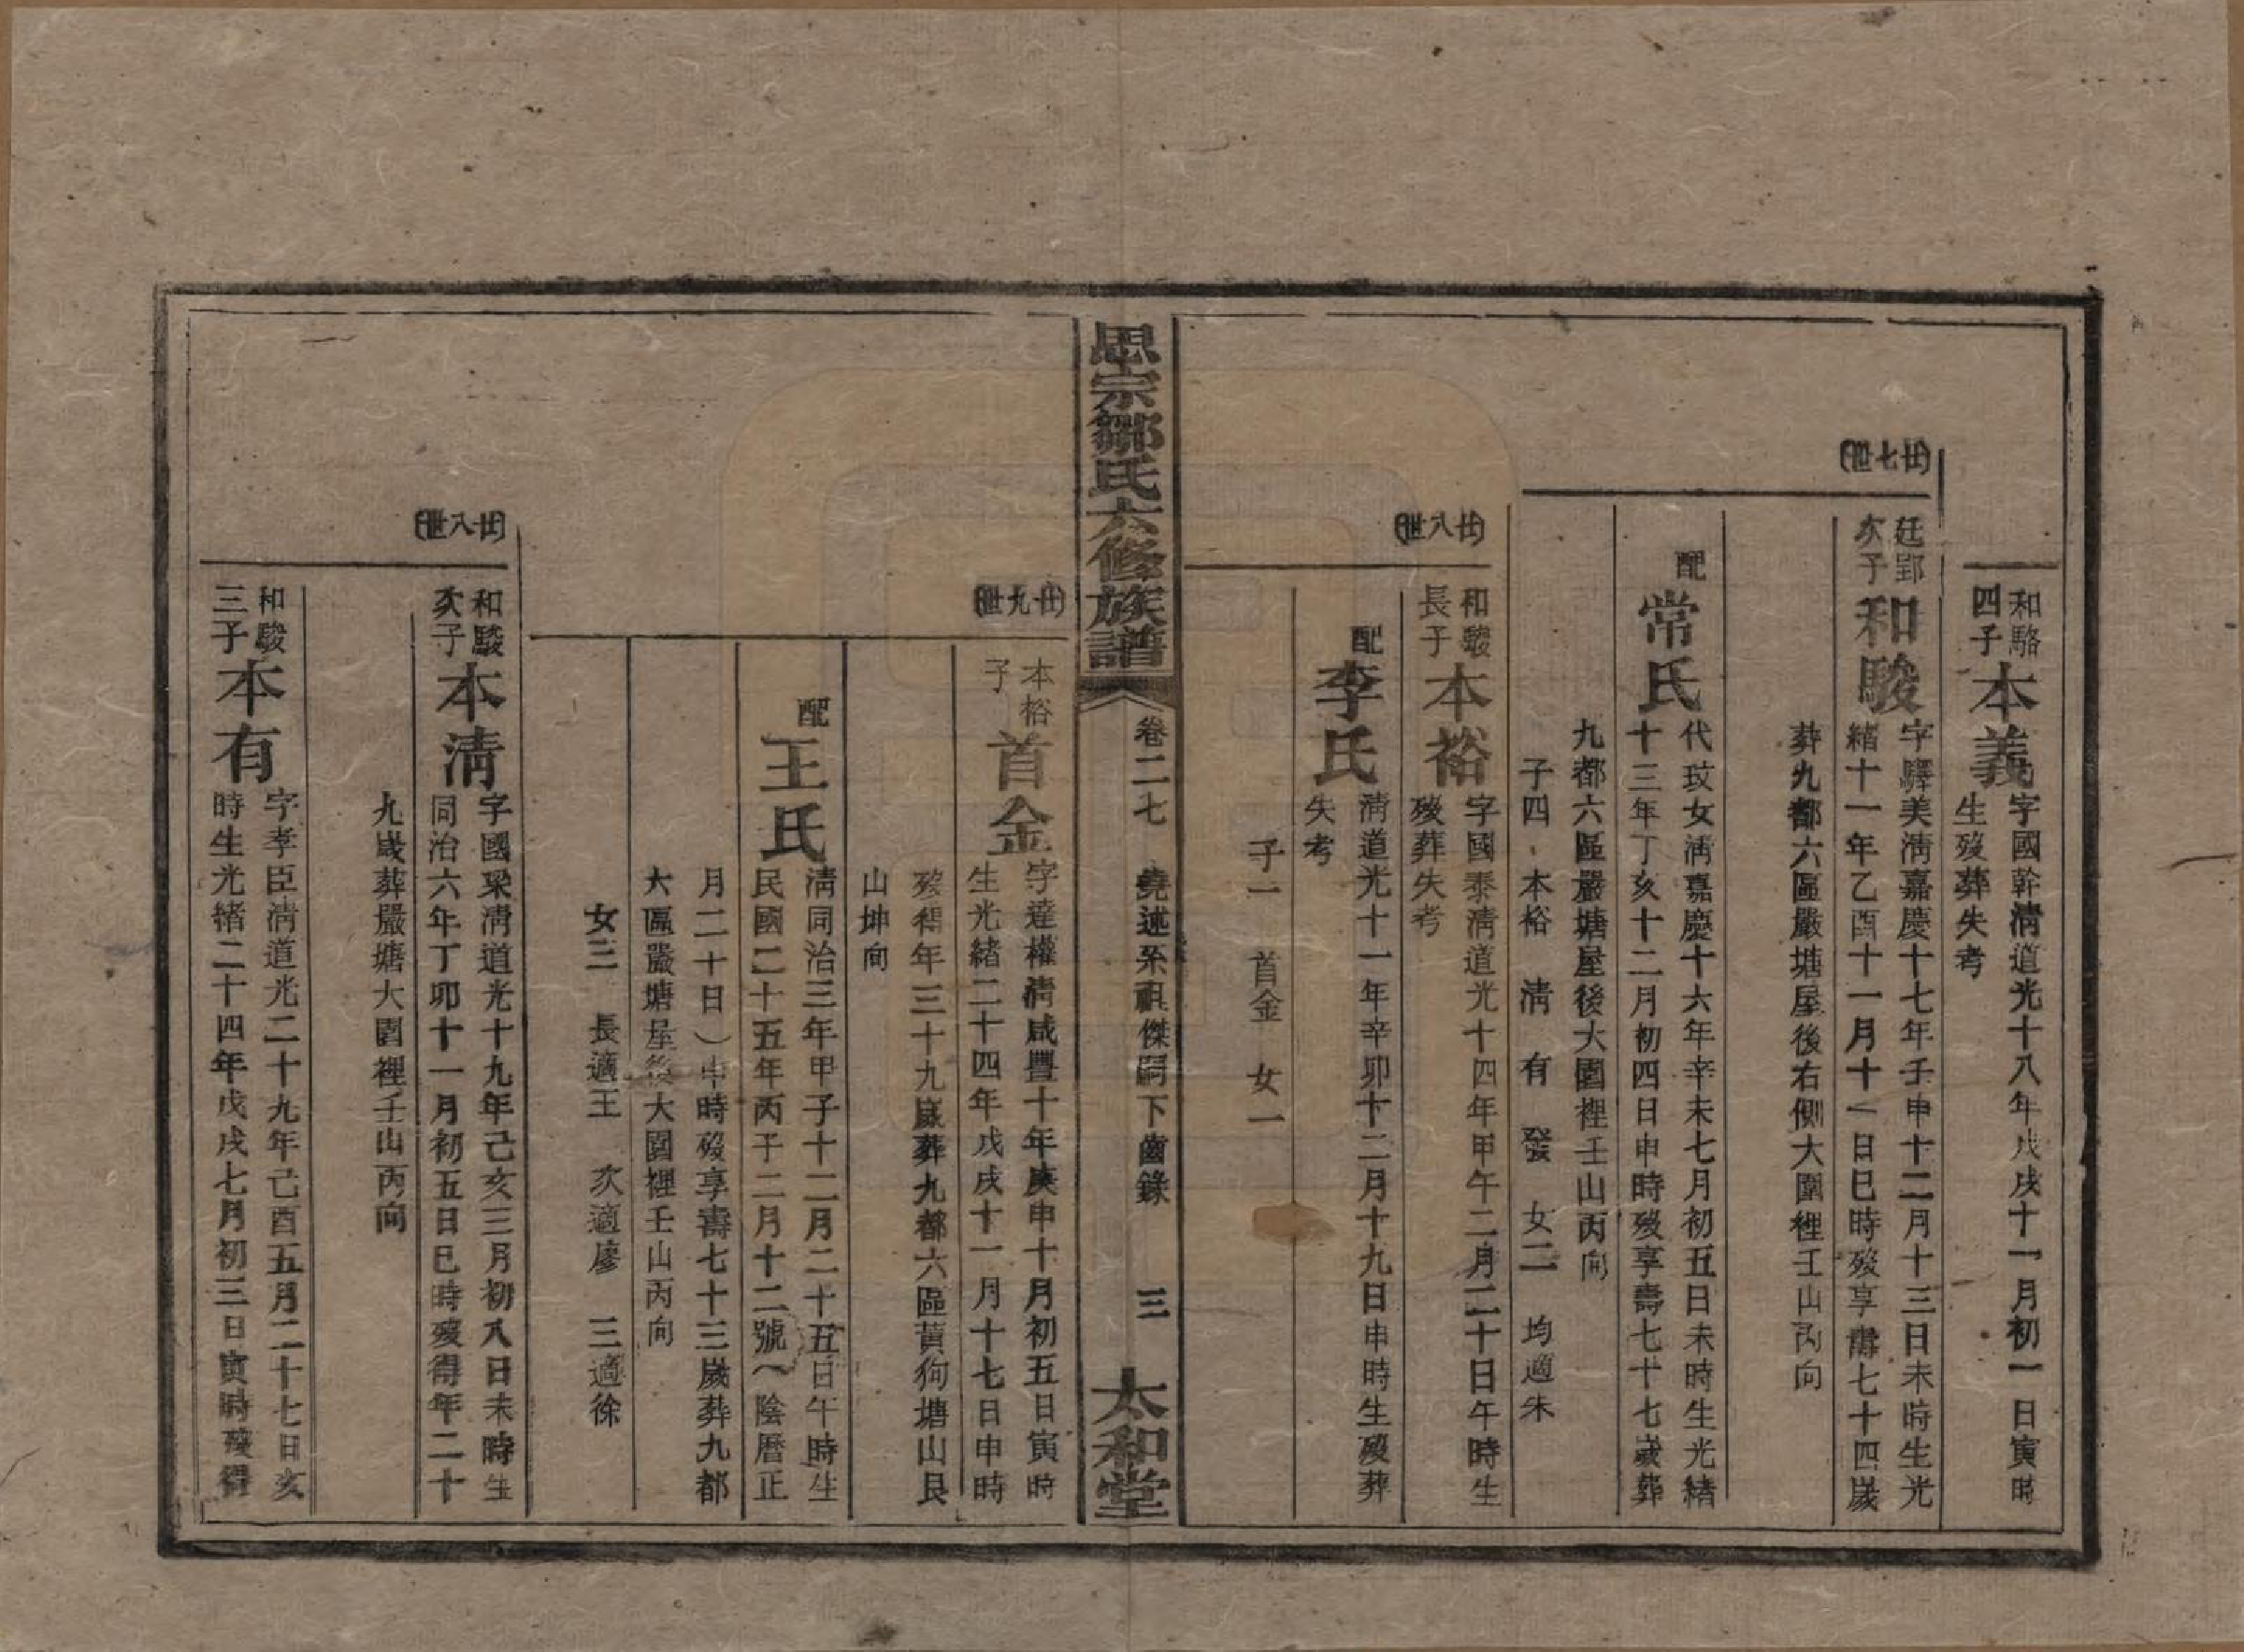 和駱
四子
本義
字國幹清道光十八年戊戌十一月初一日寅時
生歿葬失考
廿七世
廷郢
次子
和駿
字驛美清嘉慶十七年壬申十二月十三日未時生光
緒十一年乙酉十一月十一日巳時歿享壽七十四歲
葬九都六區嚴塘屋後右側大園裡壬山丙向
配
常氏
代玟女清嘉慶十六年辛未七月初五日未時生光緒
十三年丁亥十二月初四日申時歿享壽七十七歲葬
九都六區嚴塘屋後大園裡壬山丙向
子四 本裕 清 有 發 女二 均適朱
廿八世
和駿
長子
本裕
字國泰清道光十四年甲午二月二十日午時生
歿葬失考
配
李氏
清道光十一年辛卯十二月十九日申時生歿葬
失考
子一 首金 女一
思宗鄒氏六修族譜
卷二七 堯述系祖傑嗣下齒錄 三
太和堂
廿九世
本裕
子
首金
字達權清咸豐十年庚申十月初五日寅時
生光緒二十四年戊戌十一月十七日申時
歿得年三十九歲葬九都六區黃狗塘山艮
山坤向
配
王氏
清同治三年甲子十二月二十五日午時生
民國二十五年丙子二月十二號（陰曆正
月二十日）申時歿享壽七十三歲葬九都
六區嚴塘屋後大園裡壬山丙向
女三 長適王 次適廖 三適徐
廿八世
和駿
次子
本清
字國榮清道光十九年己亥三月初八日未時生
同治六年丁卯十一月初五日巳時歿得年二十
九歲葬嚴塘大園裡壬山丙向
和駿
三子
本有
字孝臣清道光二十九年己酉五月二十七日亥
時生光緒二十四年戊戌七月初三日寅時歿得